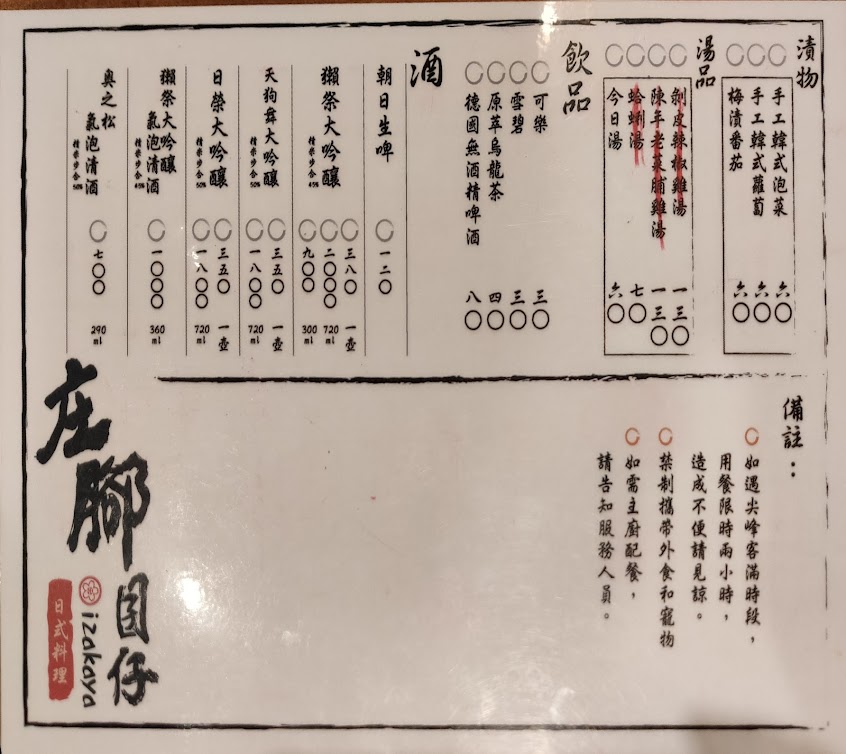 漬物
手工韓式泡菜 六〇
手工韓式蘿蔔 六〇
梅漬番茄 六〇
湯品
剝皮辣椒雞湯 一三〇
陳年老菜脯雞湯 一三〇
蛤蜊湯 七〇
今日湯 六〇
飲品
可樂 三〇
雪碧 三〇
原萃烏龍茶 四〇
德國無酒精啤酒 八〇
酒
朝日生啤 一二〇
獺祭大吟釀 精米步合 45%
三八〇 一壺
二〇〇〇 720 ml
九〇〇 300 ml
天狗舞大吟釀 精米步合 50%
三五〇 一壺
一八〇〇 720 ml
日榮大吟釀 精米步合 50%
三五〇 一壺
一八〇〇 720 ml
獺祭大吟釀
氣泡清酒 精米步合 45%
一〇〇〇 360 ml
奧之松
氣泡清酒 精米步合 50%
七〇〇 290 ml
備註：
如遇尖峰客滿時段，
用餐限時兩小時，
造成不便請見諒。
禁制攜帶外食和寵物
如需主廚配餐，
請告知服務人員。
庄腳囝仔
izakaya
日式料理